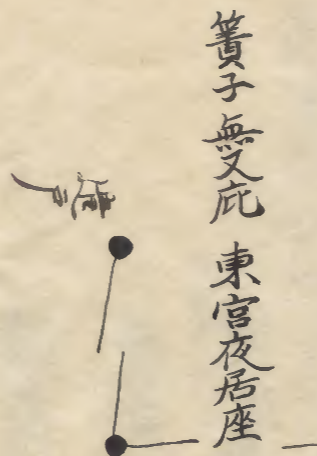 簀子無又庇 東宮夜居座